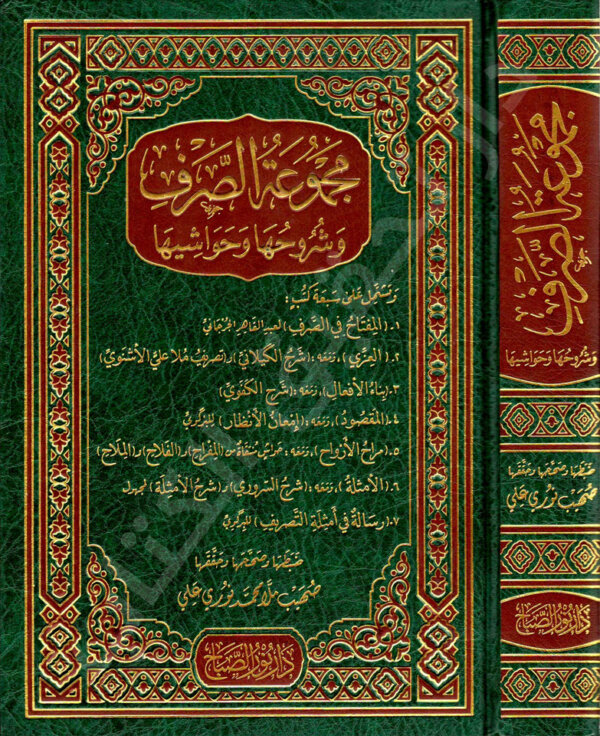 مجموعة الصرف
وشروحها وحواشيها
وتشتمل على سبعة كتب:
١. (المفتاح في الصرف) لعبد القاهر الجرجاني
٢. (العزي)، ومعه: (شرح الكيلاني) و(تصريف ملا علي الأشنوي)
٣. (بناء الأفعال)، ومعه: (شرح الكفوي)
٤. (المقصود)، ومعه: (إمعان الأنظار) للبركوي
٥. (مراح الأرواح)، ومعه: حواش منتقاة من (المفراح) و(الفلاح) و(الملاح)
٦. (الأمثلة)، ومعه: (شرح السروري) و(شرح الأمثلة) لمجهول
٧. (رسالة في أمثلة التصريف) للبركوي
ضبطها وصححها وحققها
صهيب ملا محمد نوري علي
دار نور الصباح
مجموعة الصرف
وشروحها وحواشيها
ضبطها وصححها وحققها
صهيب نوري علي
دار نور الصباح